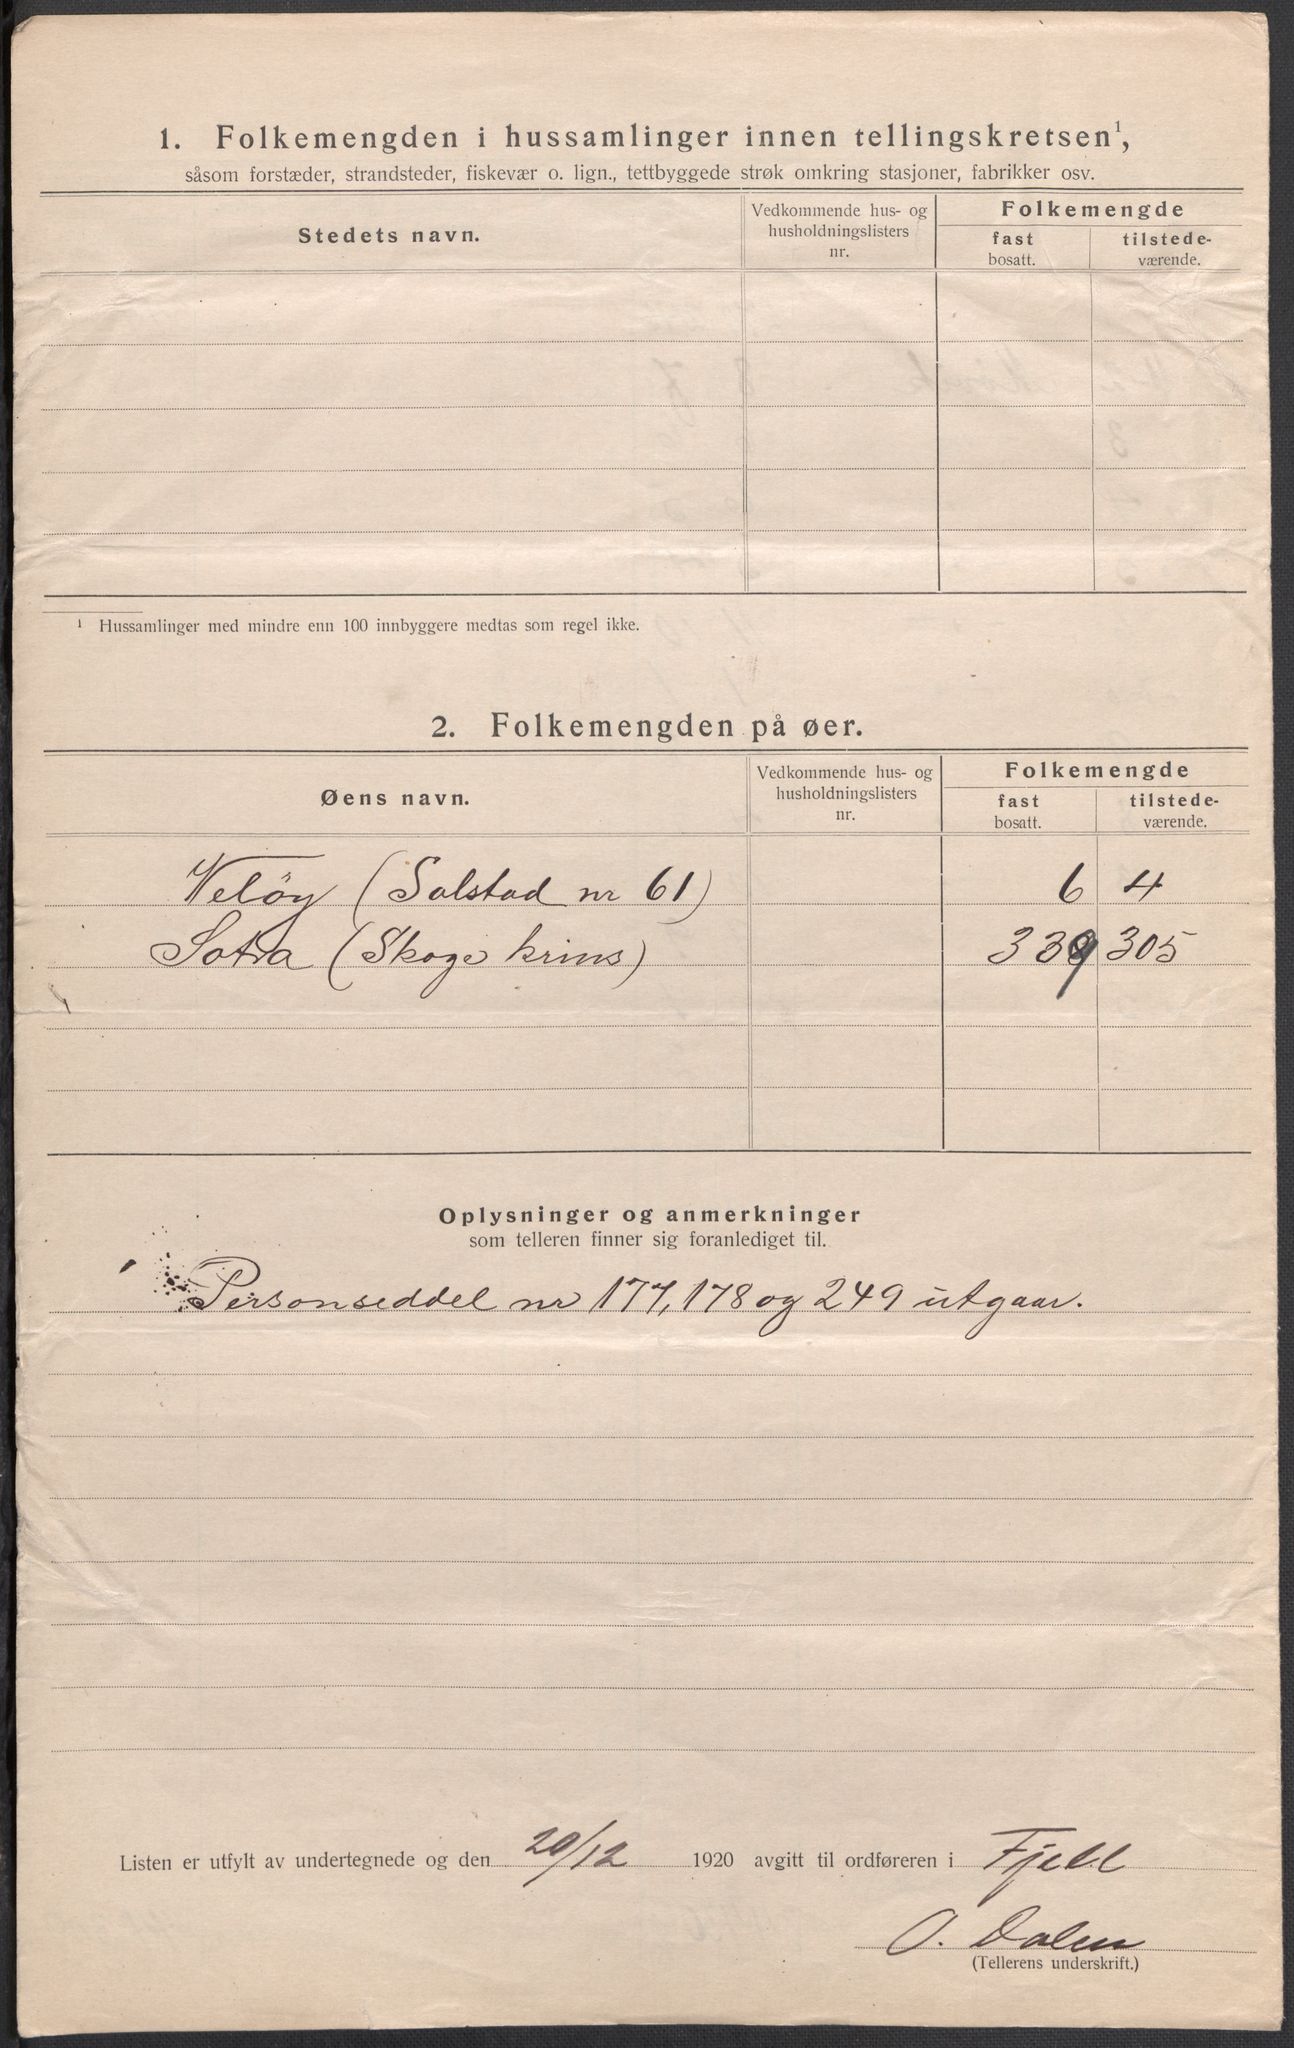 1. Folkemengden i hussamlinger innen tellingskretsen¹,
såsom forstæder, strandsteder, fiskevær o. lign., tettbyggede strøk omkring stasjoner, fabrikker osv.
Stedets navn.
Vedkommende hus- og
husholdningslisters
nr.
Folkemengde
fast
bosatt.
tilstede-
værende.
¹ Hussamlinger med mindre enn 100 innbyggere medtas som regel ikke.
2. Folkemengden på øer.
Øens navn.
Vedkommende hus- og
husholdningslisters
nr.
Folkemengde
fast
bosatt.
tilstede-
værende.
Veløy (Solstad nr 61) 6 4
Sotra (Skoge krins) 339 305
Oplysninger og anmerkninger
som telleren finner sig foranlediget til.
Personseddel nr 177, 178 og 249 utgaar.
Listen er utfylt av undertegnede og den 20/12 1920 avgitt til ordføreren i Fjell
O. Dalen
(Tellerens underskrift.)